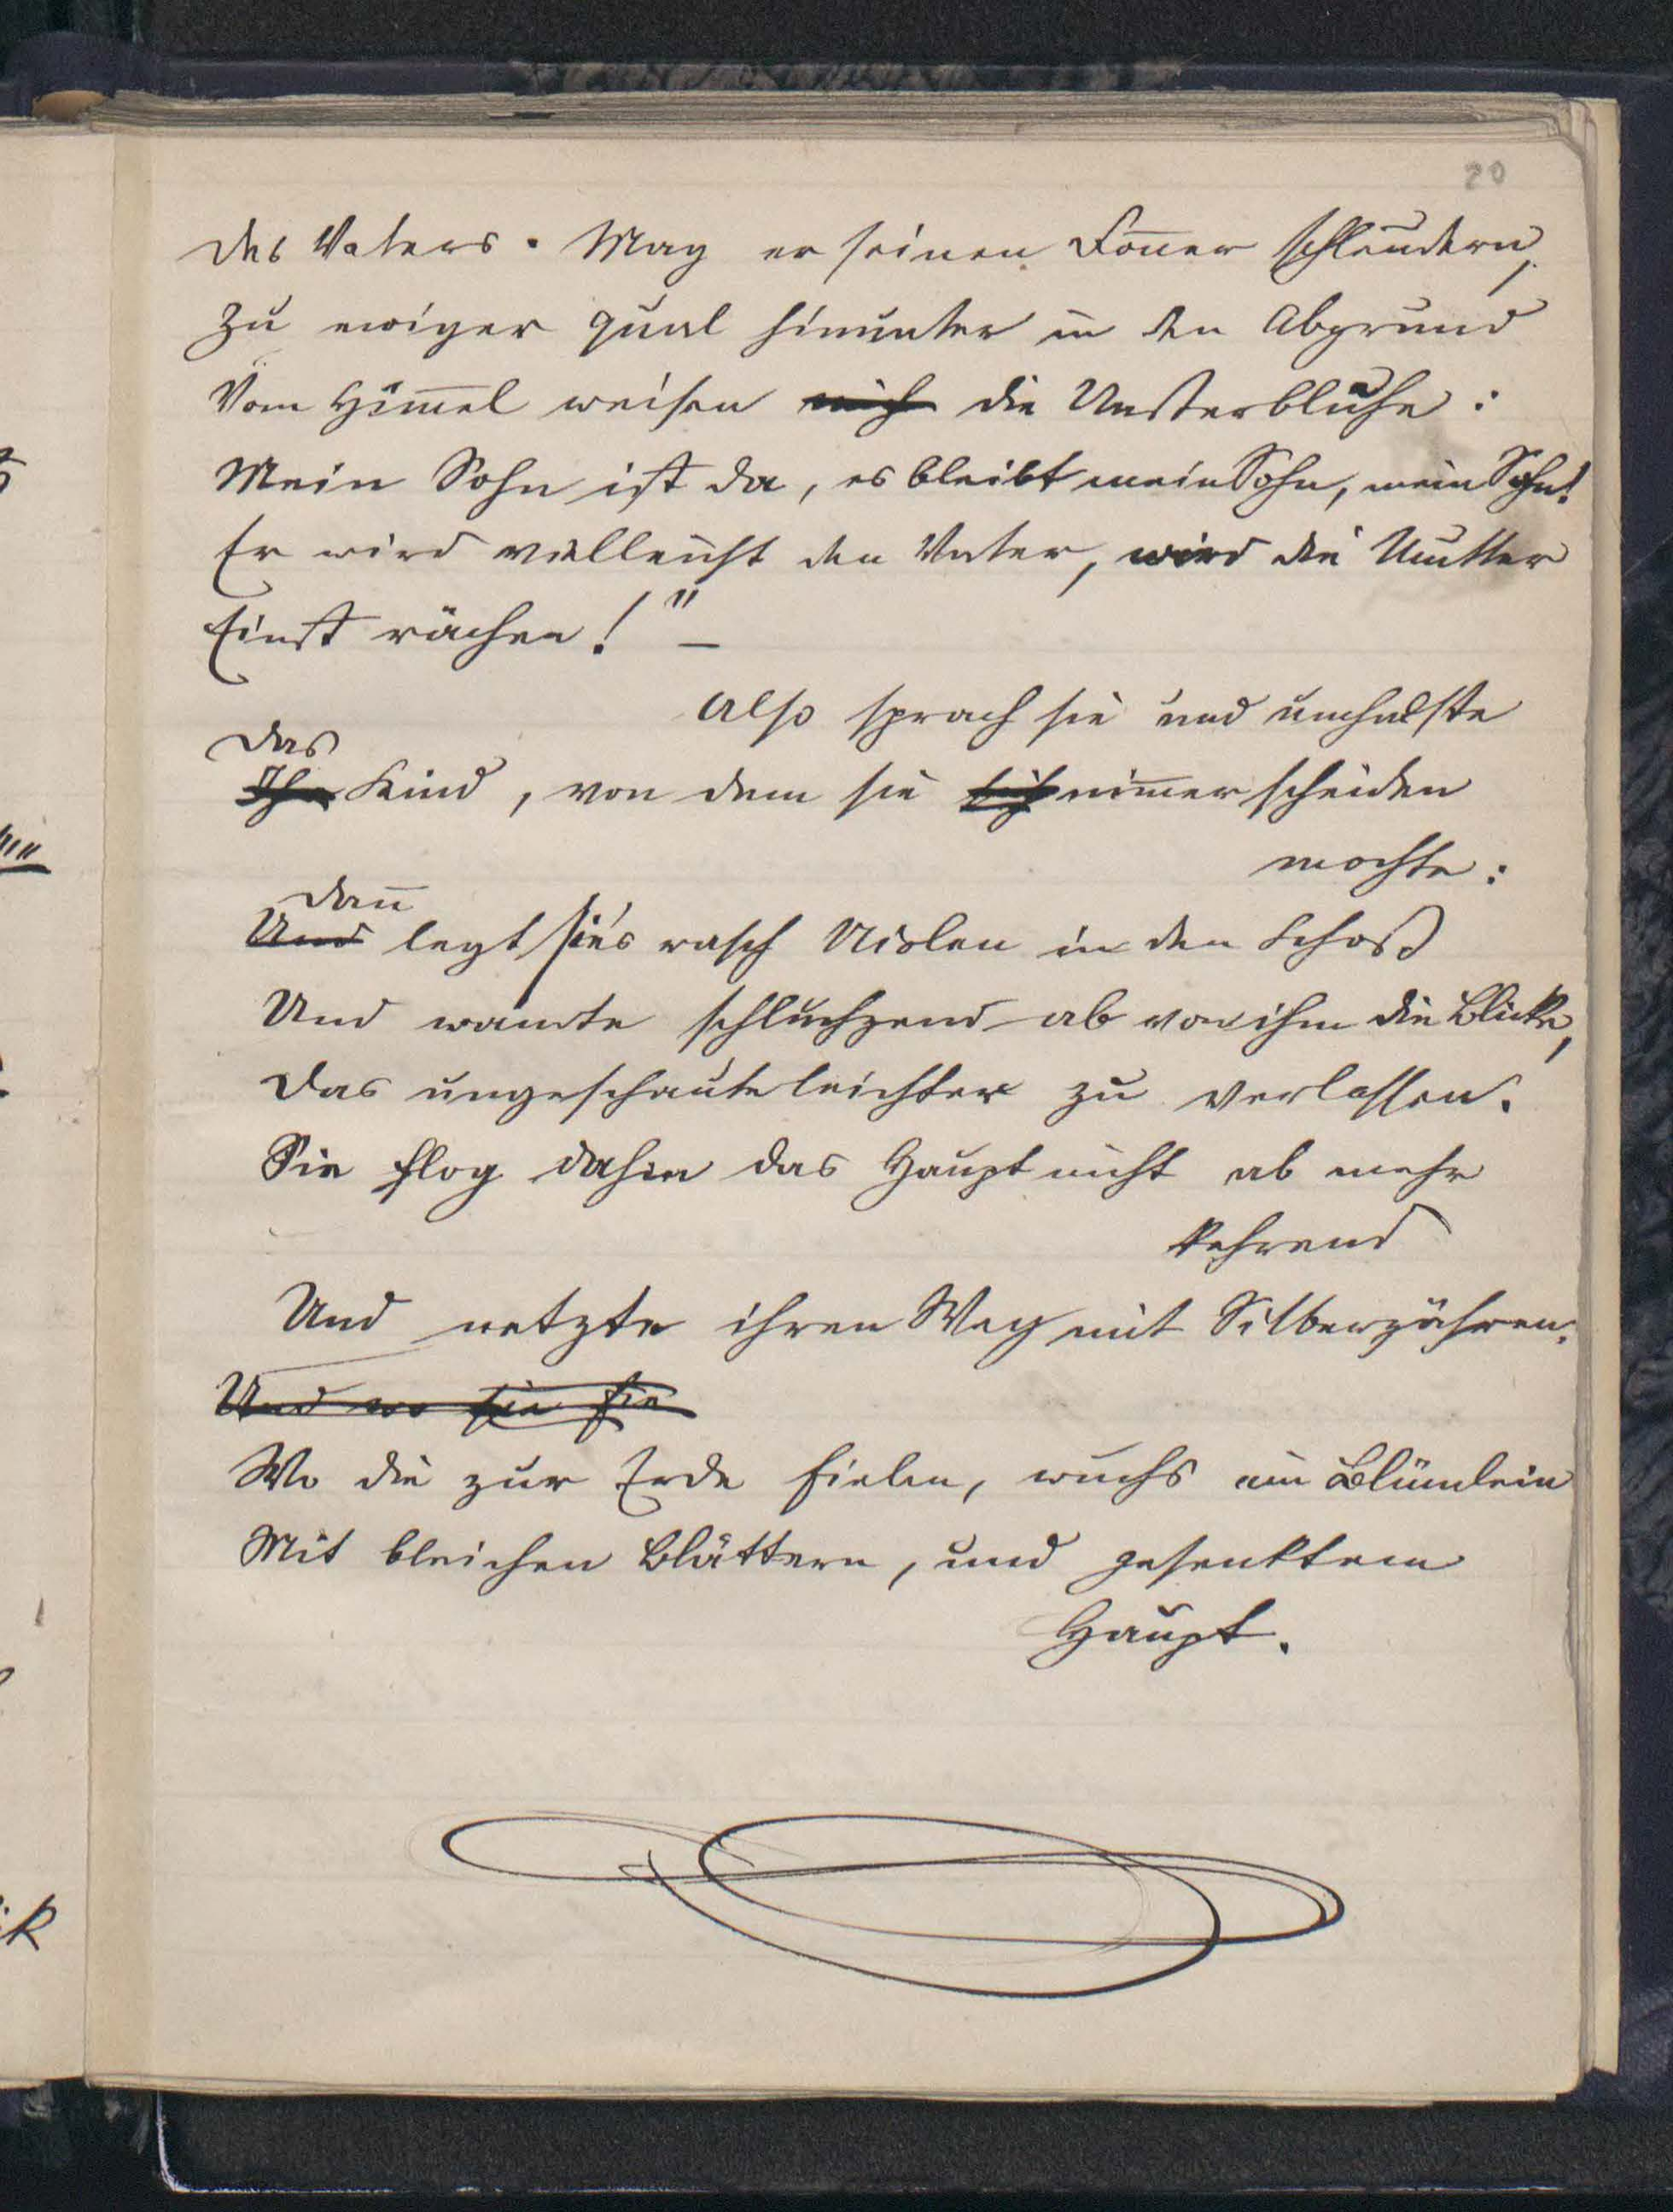 20
des Vaters. Mag er seinen Doñer schleudern,
Zu ewiger Qual hinunter in den Abgrund
Vom Him̄el weisen mich die Unsterbliche:
Mein Sohn ist da, es bleibt mein Sohn, mein Sohn!
Er wird vielleicht den Vater, wird die Mutter
Einst rächen!" –
Also sprach sie und umhalste
das
Ihr Kind, von dem sie sich nim̄er scheiden
mochte:
dañ
Und legt sie's rasch Violen in den Schoß
Und wandte schluchzend ab von ihm die Blicke,
Das ungeschaute leichter zu verlassen.
Sie flog dahin das Haupt nicht ab mehr
kehrend
Und netzte ihren Weg mit Silberzähren.
Und wo sie sie
Wo die zur Erde fielen, wuchs ein Blümlein
Mit bleichen Blättern, und gesenktem
Haupt.